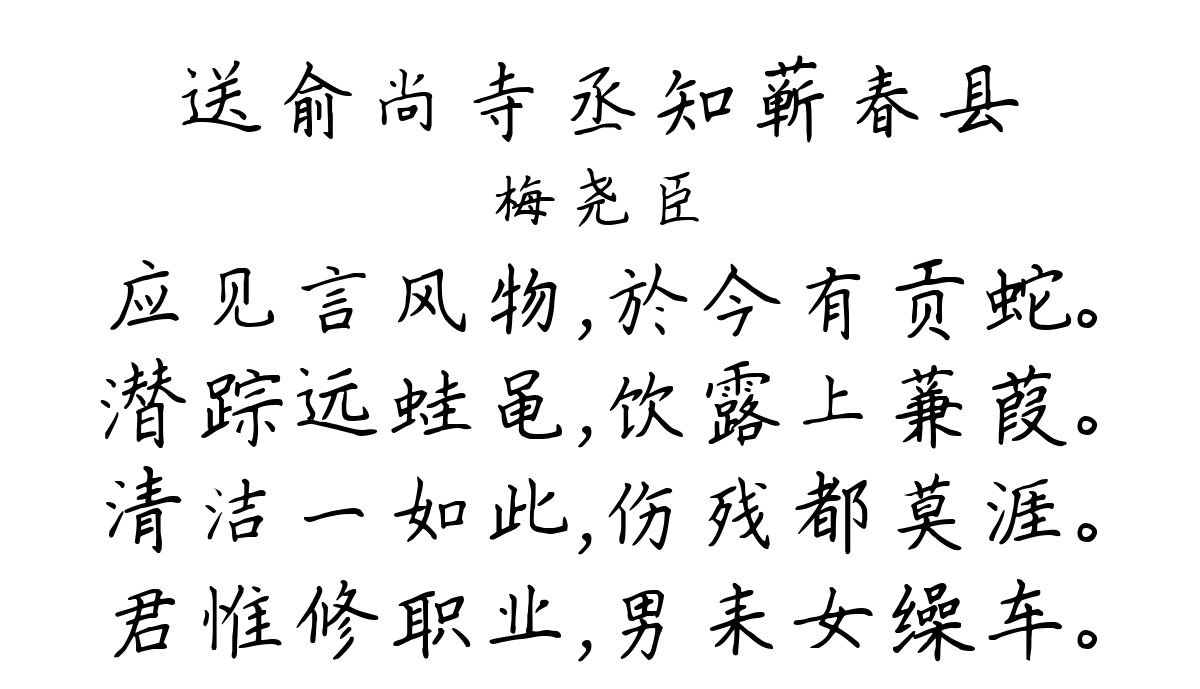 送俞尚寺丞知蕲春县
梅尧臣
应见言风物,於今有贡蛇。
潜踪远蛙黾,饮露上蒹葭。
清洁一如此,伤残都莫涯。
君惟修职业,男耒女缲车。